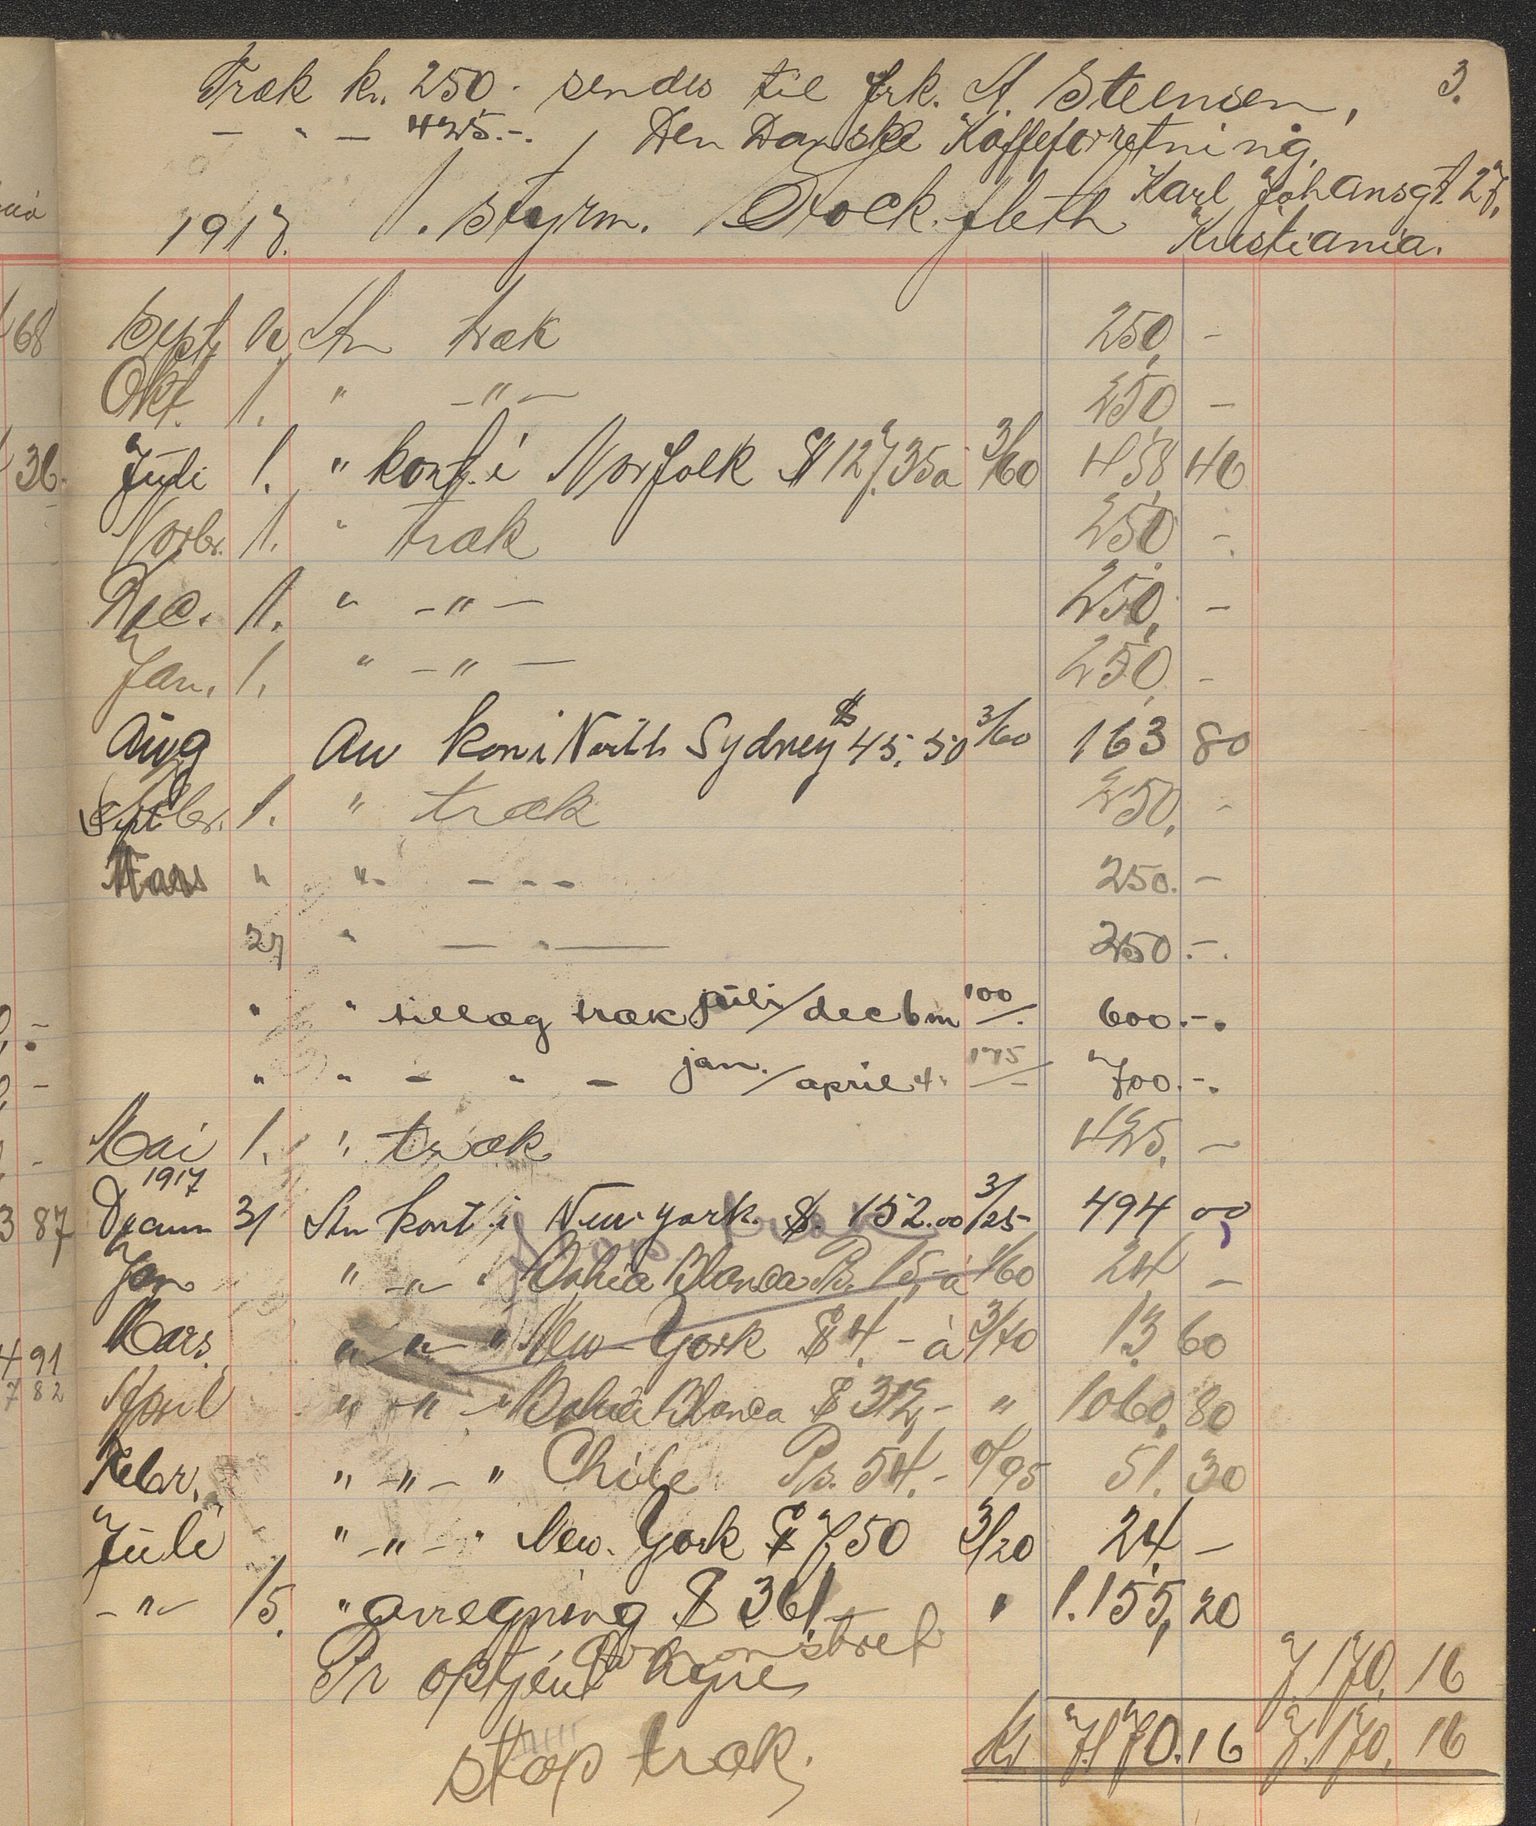 3.
Træk kr. 250.- sendes til frk. A. Steensen,
— " — 425.-. Den Danske Kaffeforretning,
Karl Johansgt. 27,
1917. 1. styrm. Stockfleth Kristiania.
Sept. 1. An træk 250, -
Okt. 1. " -"- 250 -
Juli 1. " kont. i Norfolk $ 127.35 à 3/60 458 46
Novbr. 1. " træk 250 -.
Dec. 1. " -"- 250, -
Jan. 1. " -"- 250, -
Aug An kon i North Sydney $ 45.50 3/60 163 80
1. " træk 250, -
Mars " " - - - 250. -
27 " — " — 250.-.
" " tillæg træk juli/decbm 100/- 600.-.
" " - " - jan./april 4. 175/- 700.-.
Mai 1. " træk 425. -
1917
31 An kont i New york $. 152.00 3/25 494 00
Jan " -"- " Bahia Blanca Ps. 15,- à 1/60 24 -
Mars. " -"- " New York $ 4.- à 3/40 13 60
April " -"- " Bahia Blanca $ 312,- " 1060, 80
Febr. " -"- " Chile Ps. 54.- 0/95 51. 30
Juli " -"- " New. York $ 7,50 3/20 24, -
-"- 15. " avregning $ 361. " 1.155, 20
Pr optjent hyre 7.170, 16
Kr 7.170.16 7.170, 16
stop træk.
68
36.
3 87
4 91
7 82